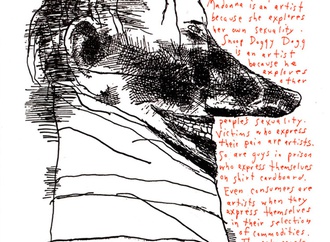 Madonna is an artist
because she explores
her own sexuality.
Snoop Doggy Dogg
is an artist
because he
explores
other
people's sexuality.
Victims who express
their pain are artists.
So are guys in prison
who express themselves
on shirt cardboard.
Even consumers are
artists when they
express themselves
in their selection
of commodities.